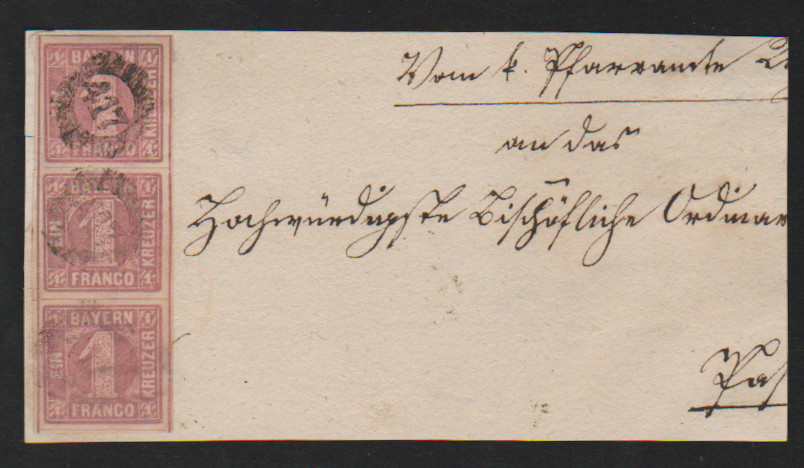 BAYERN
EIN
KREUZER
FRANCO
417
BAYERN
EIN
1
KREUZER
FRANCO
BAYERN
EIN
1
KREUZER
FRANCO
Vom k. Pfarramte
an das
Hochwürdigste Bischöfliche Ordinar
Pas